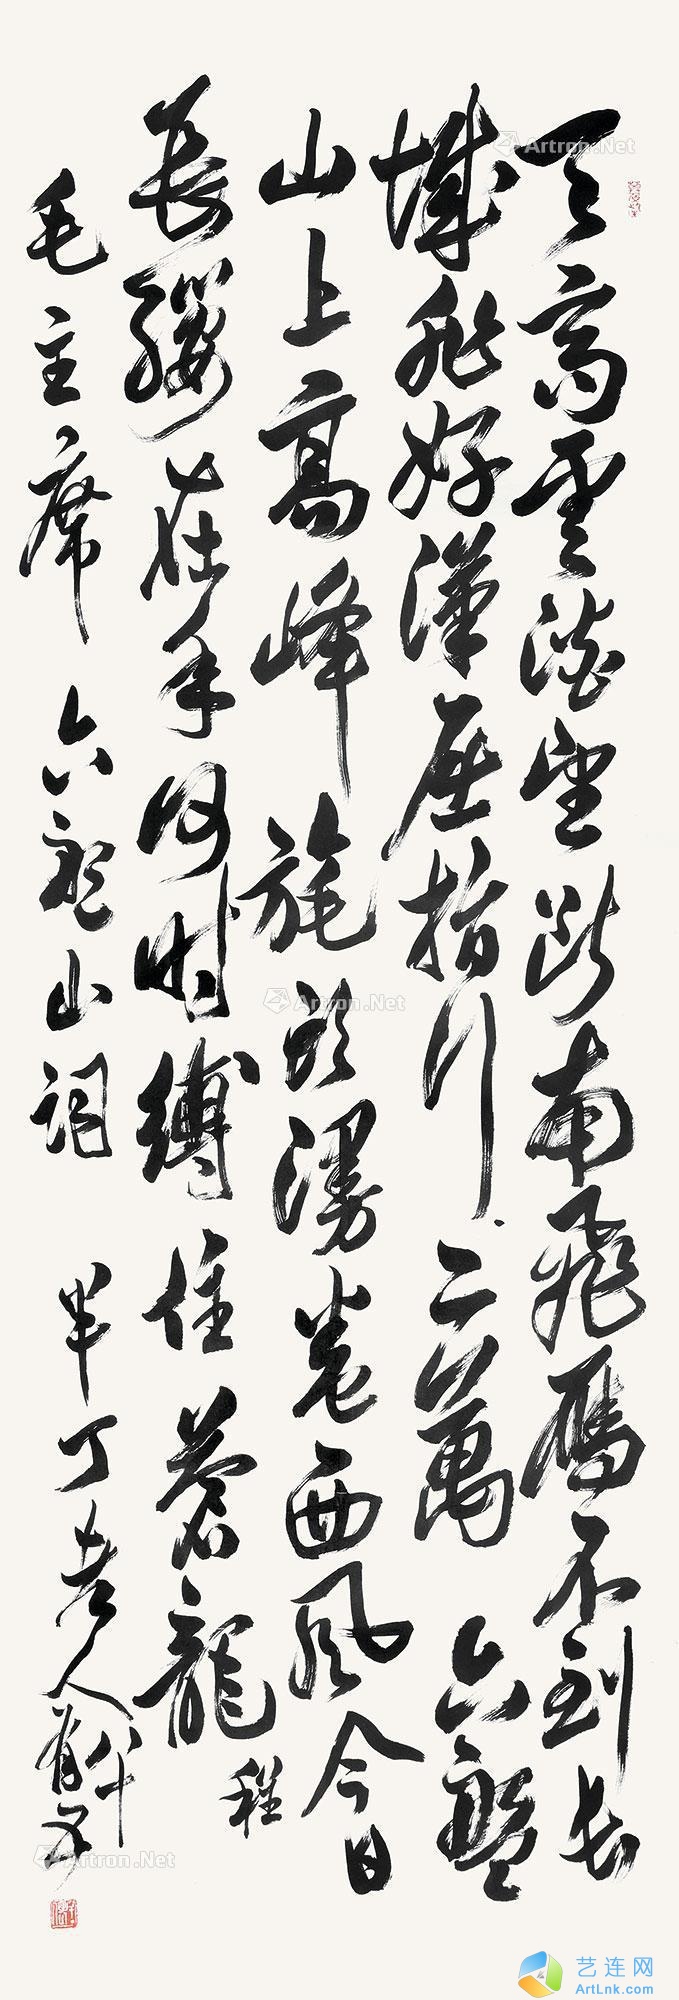 天高雲澹望斷南飛雁不到長
城非好漢屈指行、二萬六盤
山上高峰旄頭漫卷西風今日
長纓在手何時縛住蒼龍
程
毛主席六盤山詞 半丁老人八十有五
Artron.Net
Artron.Net
Artron.Net
艺连网
ArtLnk.com